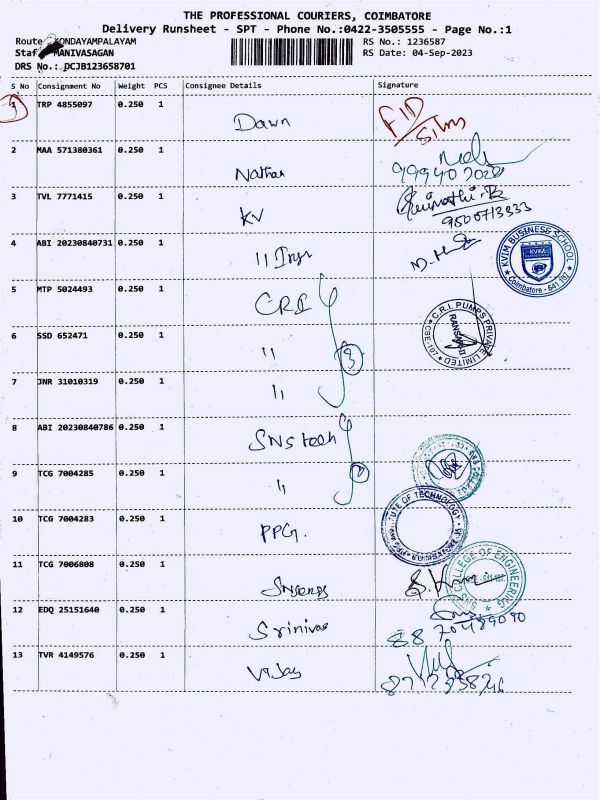 THE PROFESSIONAL COURIERS, COIMBATORE
Delivery Runsheet - SPT - Phone No.:0422-3505555 - Page No.:1
Route KONDAYAMPALAYAM RS No.: 1236587
Staf MANIVASAGAN RS Date: 04-Sep-2023
DRS No.: DCJB123658701
S No Consignment No Weight PCS Consignee Details Signature
1 TRP 4855097 0.250 1 Dawn
2 MAA 571380361 0.250 1 Nathan
3 TVL 7771415 0.250 1 KV
9500713333
4 ABI 20230840731 0.250 1
KVIM BUSINESS SCHOOL
KVIM
Coimbatore - 641 107
5 MTP 5024493 0.250 1 CRI
C.R.I. PUMPS PRIVATE LIMITED
6 SSD 652471 0.250 1 "
3
7 JNR 31010319 0.250 1 "
8 ABI 20230840786 0.250 1 SNS tech
9 TCG 7004285 0.250 1 "
10 TCG 7004283 0.250 1 PPG.
TUTE OF TECHNOLOGY
11 TCG 7006808 0.250 1
SNS COLLEGE OF ENGINEERING
12 EDQ 25151640 0.250 1 Srinivas
13 TVR 4149576 0.250 1 Vijay